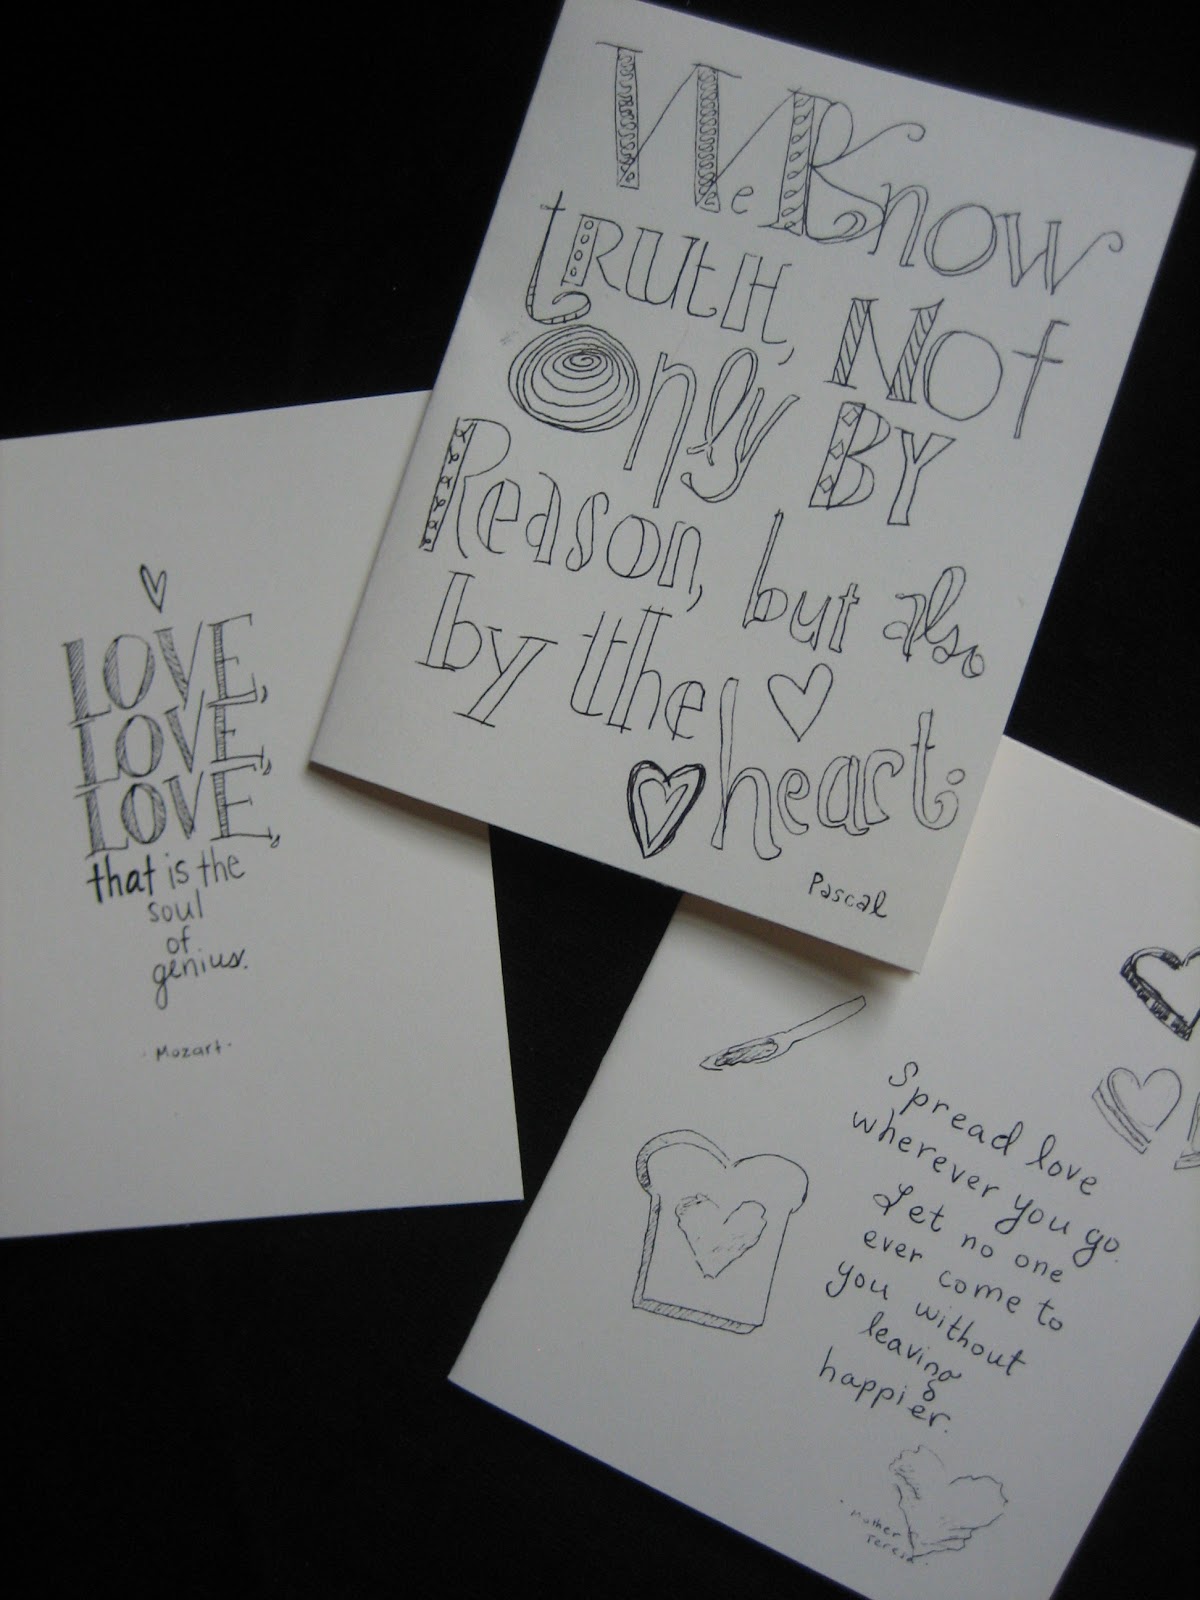 We Know
truth, Not
Only BY
Reason, but also
by the
heart.
Pascal
LOVE,
LOVE,
LOVE,
that is the
soul
of
genius.
· Mozart ·
Spread love
wherever you go.
Let no one
ever come to
you without
leaving
happier.
· Mother
Teresa ·